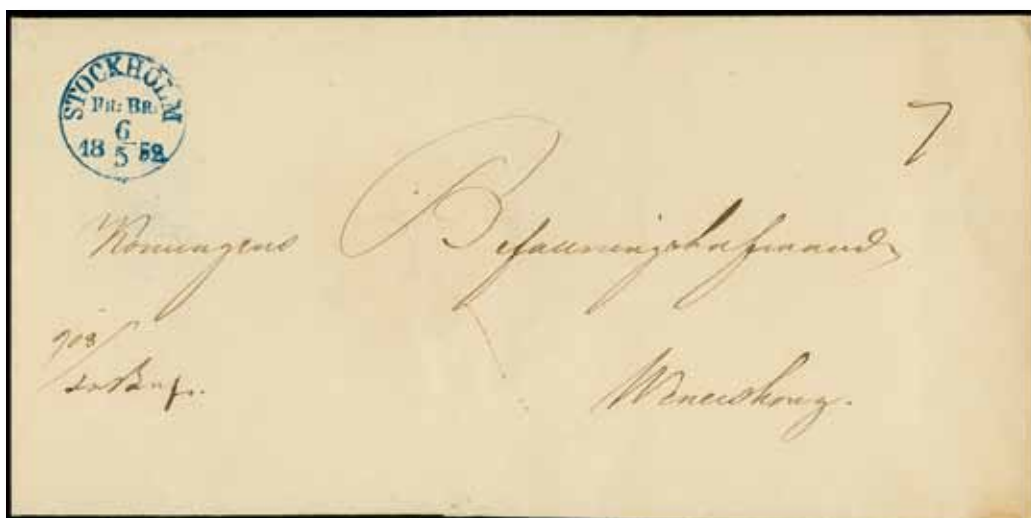 STOCKHOLM
FR: BR.
6
18 5 52
7
Konungens Befallningshafwande
Wenersborg.